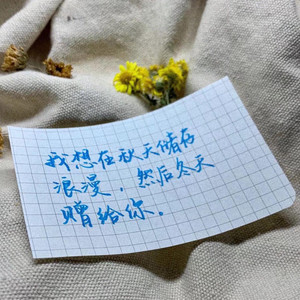 我想在秋天储存
浪漫，然后冬天
赠给你。